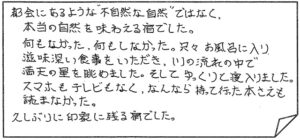 都会にあるような"不自然な自然"ではなく、
本当の自然を味わえる宿でした。
何もなかった、何もしなかった。只々お風呂に入り
滋味深い食事をいただき、川の流れの中で
満天の星を眺めました。そしてゆっくりと寝入りました。
スマホもテレビもなく、なんなら持って行った本さえも
読まなかった。
久しぶりに印象に残る宿でした。